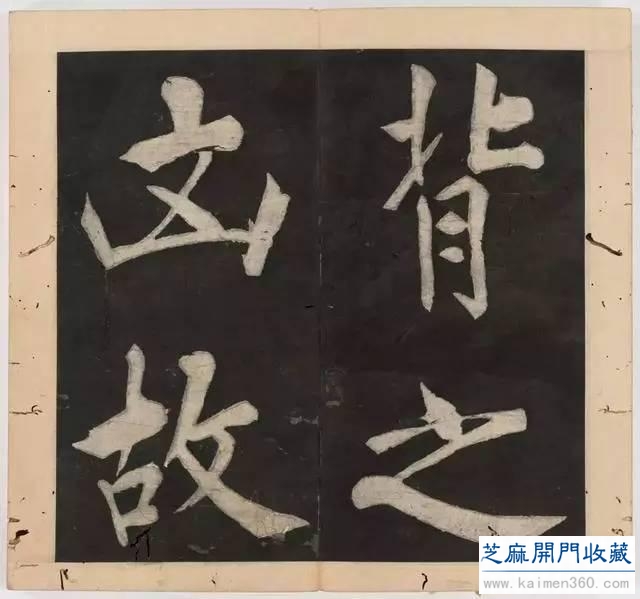 背之
㐫故
芝麻開門收藏
www.kaimen360.com